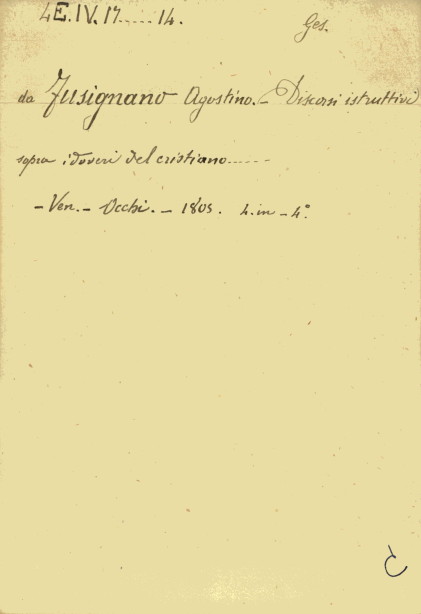 4E.IV.17.....14.
Ges.
da Fusignano Agostino. - Discorsi istruttivi
sopra i doveri del cristiano......
- Ven. - Occhi. - 1805. 4. in - 4°.